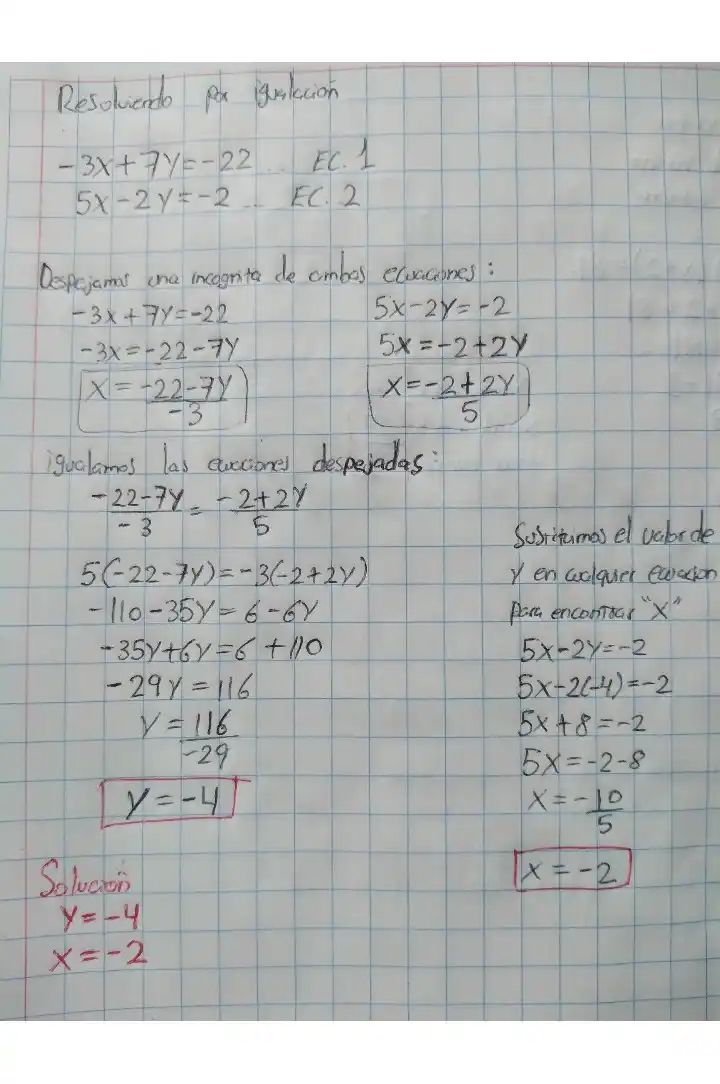 Resolviendo por igualación
-3x+7y=-22 .. EC. 1
5x-2y=-2 .. EC. 2
Despejamos una incognita de ambas ecuaciones:
-3x+7y=-22
-3x=-22-7y
x=-22-7y
-3
5x-2y=-2
5x=-2+2y
x=-2+2y
5
igualamos las ecuaciones despejadas:
-22-7y = -2+2y
-3 5
5(-22-7y)=-3(-2+2y)
-110-35y=6-6y
-35y+6y=6+110
-29y=116
y=116
-29
y=-4
Sustituimos el valor de
y en cualquier ecuación
para encontrar "x"
5x-2y=-2
5x-2(-4)=-2
5x+8=-2
5x=-2-8
x=-10
5
x=-2
Solución
y=-4
x=-2